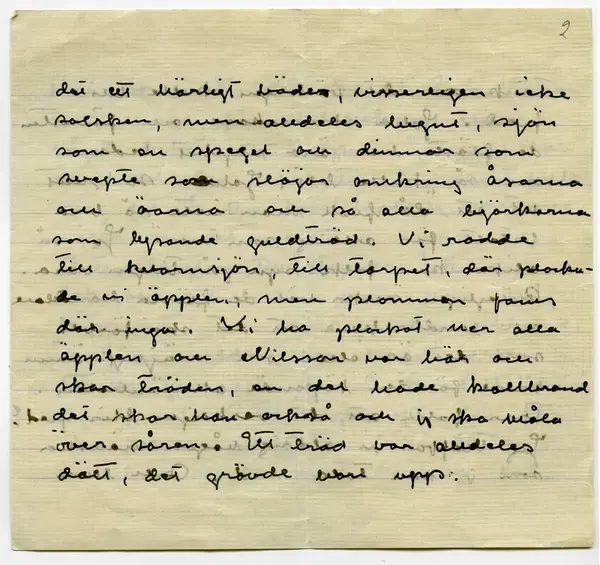 2
det ett härligt väder, visserligen icke
solsken, men alldeles lugnt, sjön
som en spegel och dimmor som
svepte som slöjor omkring åsarna
och öarna och så alla björkarna
som lysande guldträd. Vi rodde
till kvarnsjön, till torpet, där plocka-
de vi äpplen, men plommon fans
där inga. Vi ha plockat ner alla
äpplen och Nilsson var här och
skar träden, en del hade kallbrand
det skar han också och vi ska måla
över såren. Ett träd var alldeles
dött, det grävde han upp.